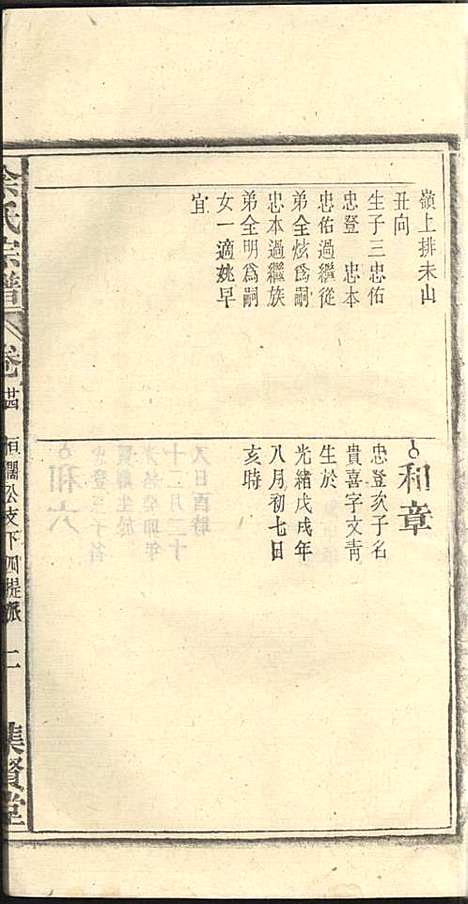 嶺上排未山
丑向
生子三忠佑
忠登 忠本
忠佑過繼從
弟全炫爲嗣
忠本過繼族
弟全明爲嗣
女一適姚早
宜
和章
忠登次子名
貴喜字文靑
生於
光緒戊戌年
八月初七日
亥時
余氏宗譜
卷廿四
恒閣公支下四提派
二
集賢堂